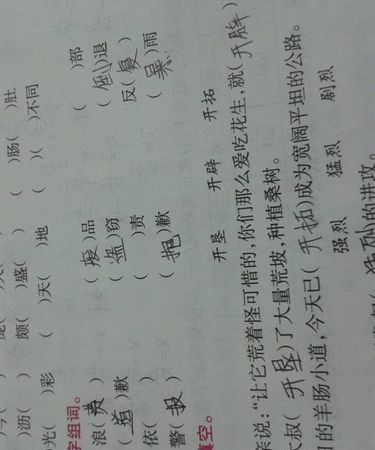 )沥( ) 颇( )盛( ) ( )肠( )肚
光( )彩 ( )天( )地 ( )( )不同
字组词。
浪(费) (废)品 ( )部
(道)歉 (盗)窃 ( )退
依( ) ( )责 反(复)
警(报) (抱)歉 ( )雨
填空。
开垦 开辟 开拓
亲说：“让它荒着怪可惜的，你们那么爱吃花生，就(开辟)
大叔(开垦)了大量荒坡，种植桑树。
的羊肠小道，今天已(开拓)成为宽阔平坦的公路。
强烈 猛烈 剧烈
猛烈的进攻。